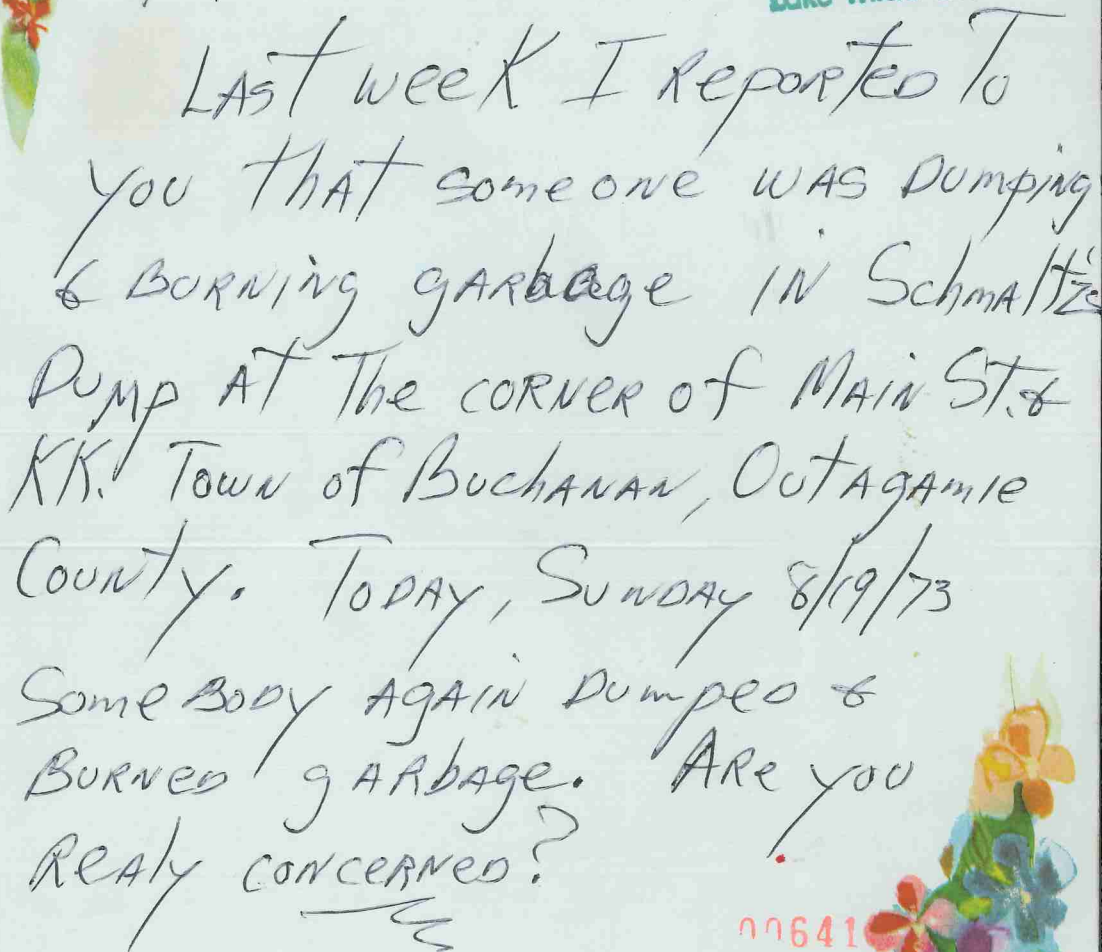 Last week I reported to
you that someone was dumping
& burning garbage in Schmaltz's
Dump at the corner of Main St. &
KK. Town of Buchanan, Outagamie
County. Today, Sunday 8/19/73
Somebody again dumped &
burned garbage. Are you
realy concerned?
00641